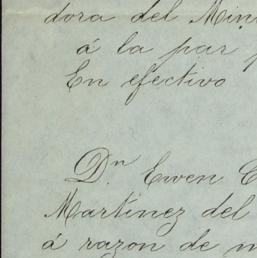 dora del Min
á la par p
En efectivo
Dn. Ewen C
Martinez del
á razon de m